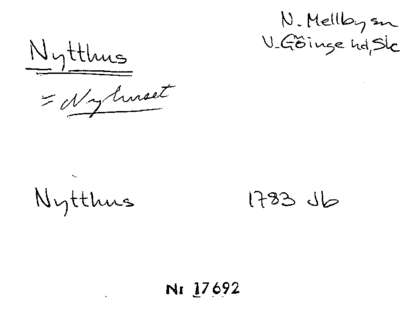 Nytthus
N. Mellby sn
V. Göinge hd, Sk
= Nyhuset
Nytthus 1783 Jb
Nr 17692